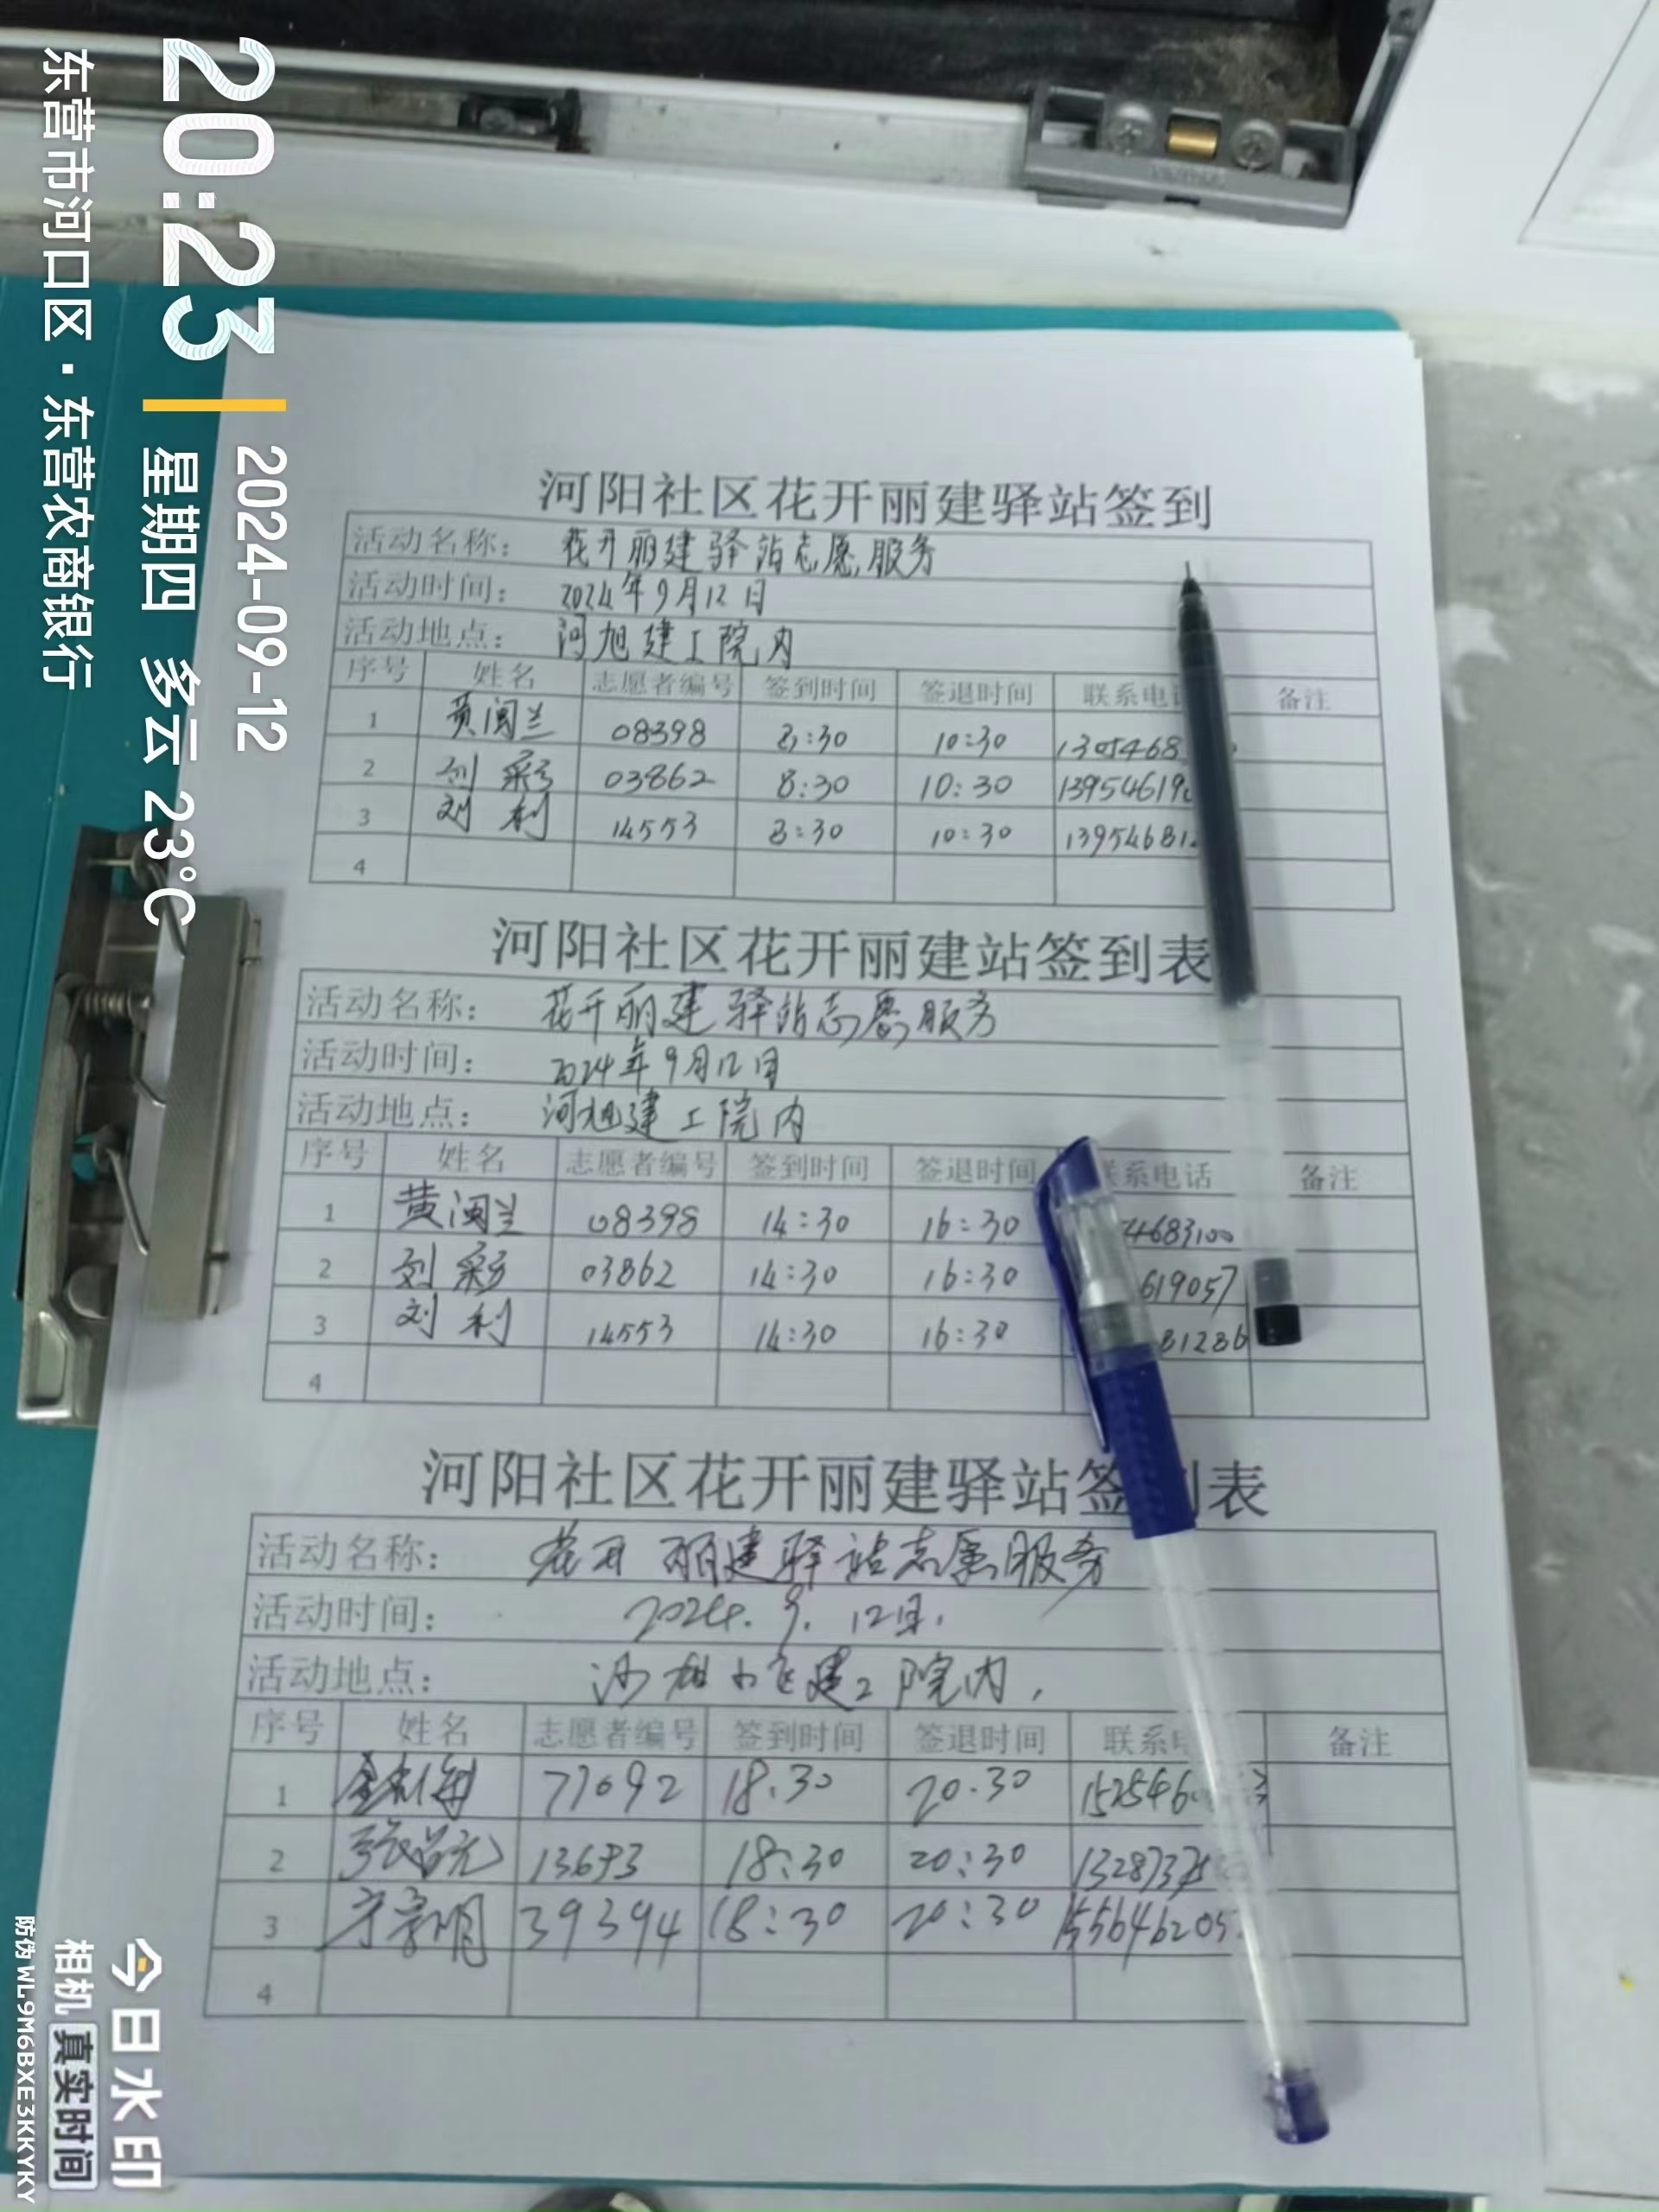 20:23
2024-09-12
星期四 多云 23℃
东营市河口区·东营农商银行
河阳社区花开丽建驿站签到
活动名称： 花开丽建驿站志愿服务
活动时间： 2024年9月12日
活动地点： 河旭建工院内
序号 姓名 志愿者编号 签到时间 签退时间 联系电话 备注
1 黄闽兰 08398 8:30 10:30 1305468
2 刘彩 03862 8:30 10:30 139546190
3 刘利 14553 8:30 10:30 13954681
4
河阳社区花开丽建站签到表
活动名称： 花开丽建驿站志愿服务
活动时间： 2024年9月12日
活动地点： 河旭建工院内
序号 姓名 志愿者编号 签到时间 签退时间 联系电话 备注
1 黄闽兰 08398 14:30 16:30 4683100
2 刘彩 03862 14:30 16:30 619057
3 刘利 14553 14:30 16:30 81286
4
河阳社区花开丽建驿站签到表
活动名称： 花开丽建驿站志愿服务
活动时间： 2024.9.12日.
活动地点： 建工院内
序号 姓名 志愿者编号 签到时间 签退时间 联系电 备注
1 77092 18.30 20.30 1525460
2 18:30 20:30 1328737
3 39394 18:30 20:30 155646205
4
今日水印
相机 真实时间
防伪 WL9M6BXE3KKYKY